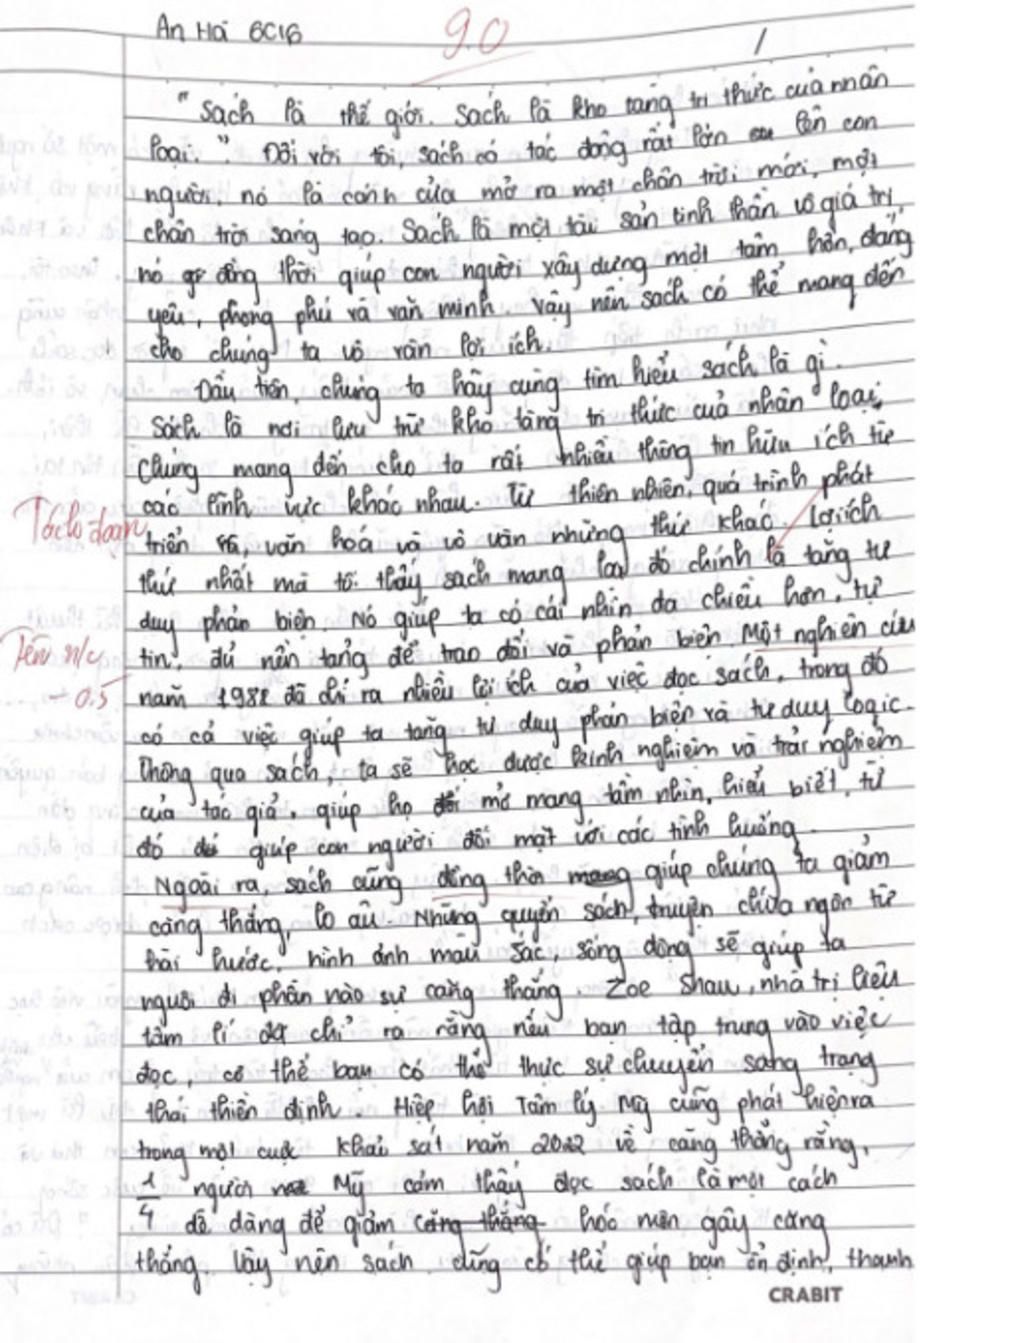 An Hải 6C16
9.0
1
"Sách là thế giới. Sách là kho tàng tri thức của nhân
loại" Đối với tôi, sách có tác động rất lớn lên con
người, nó là cánh cửa mở ra một chân trời mới, một
chân trời sáng tạo. Sách là một tài sản tinh thần vô giá trị,
nó đồng thời giúp con người xây dựng một tâm hồn đáng
yêu, phong phú và văn minh, vậy nên sách có thể mang đến
cho chúng ta vô vàn lợi ích.
Đầu tiên, chúng ta hãy cùng tìm hiểu sách là gì.
Sách là nơi lưu trữ kho tàng tri thức của nhân loại,
chúng mang đến cho ta rất nhiều thông tin hữu ích từ
các lĩnh vực khác nhau. Từ thiên nhiên, quá trình phát
Tách đoạn
triển văn hóa và vô vàn những thứ khác. Lợi ích
thứ nhất mà tôi thấy sách mang lại đó chính là tăng tư
duy phản biện. Nó giúp ta có cái nhìn đa chiều hơn, tự
Tên n/c
0.5
tin, đủ nền tảng để trao đổi và phản biện. Một nghiên cứu
năm 1988 đã chỉ ra nhiều lợi ích của việc đọc sách, trong đó
có cả việc giúp ta tăng tư duy phản biện và tư duy logic.
Thông qua sách, ta sẽ học được kinh nghiệm và trải nghiệm
của tác giả, giúp họ mở mang tầm nhìn, hiểu biết, từ
đó giúp con người đối mặt với các tình huống.
Ngoài ra, sách cũng đồng thời giúp chúng ta giảm
căng thẳng, lo âu. Những quyển sách, truyện chứa ngôn từ
hài hước, hình ảnh màu sắc, sống động sẽ giúp ta
nguôi đi phần nào sự căng thẳng. Zoe Shaw, nhà trị liệu
tâm lí đã chỉ ra rằng nếu bạn tập trung vào việc
đọc, có thể bạn có thể thực sự chuyển sang trạng
thái thiền định. Hiệp hội Tâm lý Mỹ cũng phát hiện ra
trong một cuộc khảo sát năm 2022 về căng thẳng rằng,
1/4 người Mỹ cảm thấy đọc sách là một cách
dễ dàng để giảm căng thẳng hoóc môn gây căng
thẳng. Vậy nên sách cũng có thể giúp bạn ổn định, thanh
CRABIT